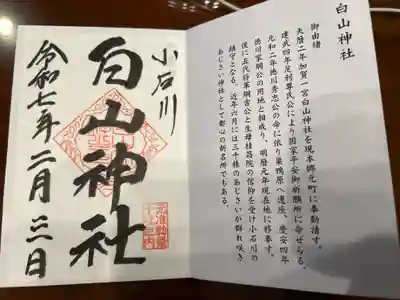 白山神社
御由緒
天暦二年加賀一宮白山神社を現本郷元町に奉勧請す。
建武四年足利尊氏公により国家平安御祈願所に命ぜらる。
元和二年徳川秀忠公の命に依り巣鴨原へ遷座、慶安四年
徳川家綱公の用地と相成り、明暦元年現在地に移奉す。
後に五代将軍綱吉公と生母桂昌院の信仰を受け小石川の
鎮守となる。近年六月には三千株のあじさいが群れ咲き
あじさい神社として都心の新名所でもある。
小石川
白山神社
令和七年二月三日